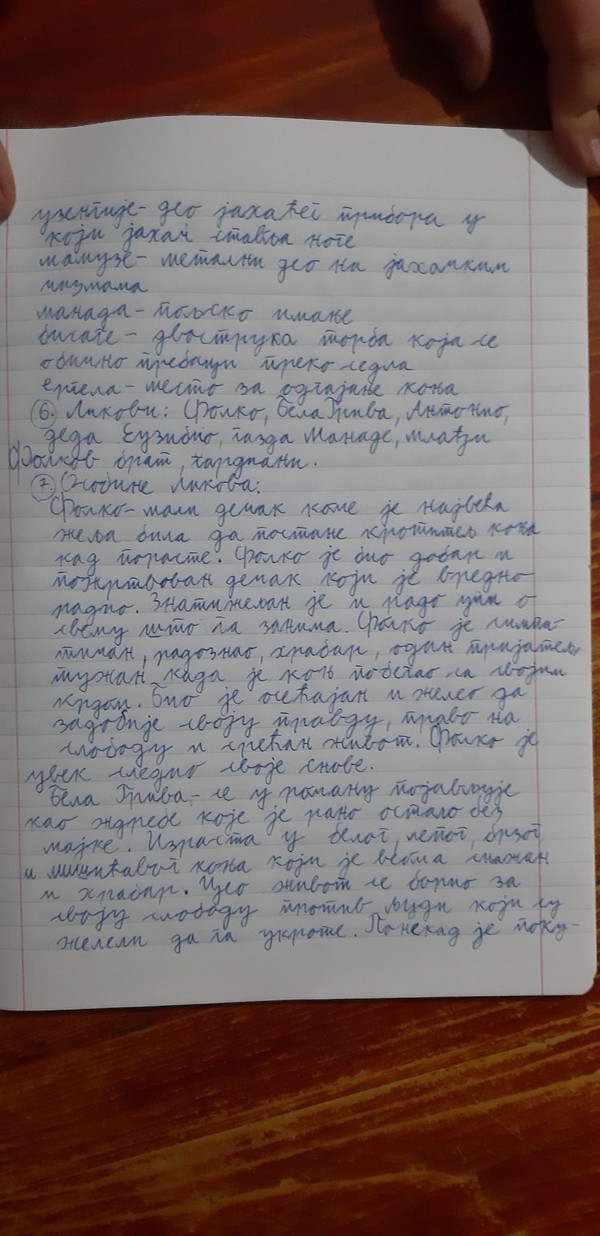 узенгије- део јахаћег прибора у
који јахач ставља ноге
мамузе- метални део на јахачким
чизмама
манада- пољско имање
бисаге- двострука торба која се
обично пребаци преко седла
ергела- место за одгајање коња
6. Ликови: Фолко, Бела Грива, Антонио,
деда Еузибио, газда Манаде, млађи
Фолков брат, гардијани.
7. Особине ликова:
Фолко- мали дечак коме је највећа
жеља била да постане кротитељ коња
кад порасте. Фолко је био добар и
пожртвован дечак који је вредно
радио. Знатижељан је и радо учи о
свему што га занима. Фолко је симпа-
тичан, радознао, храбар, одан пријатељ,
тужан када је коњ побегао са својим
крдом. Био је осећајан и желео да
задобије своју правду, право на
слободу и срећан живот. Фолко је
увек следио своје снове.
Бела Грива,- се у роману појављује
као ждребе које је рано остало без
мајке. Израста у белог, лепог, брзог
и мишићавог коња који је веома снажан
и храбар. Цео живот се борио за
своју слободу против људи који су
желели да га укроте. Понекад је поку-